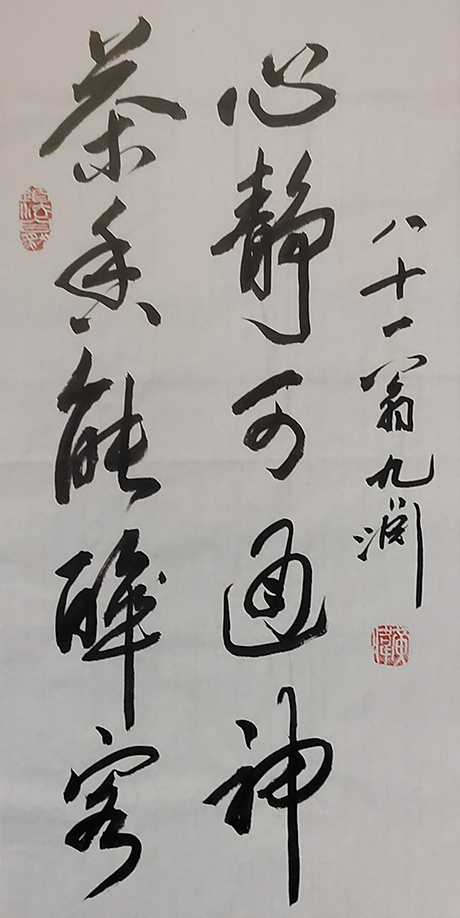 茶香能醉客
心静可通神
八十一翁九渊